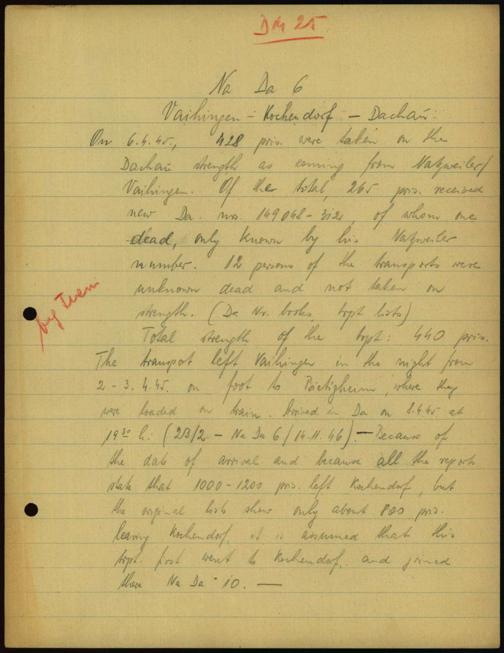 DM 25
Na Da 6
Vaihingen - Kochendorf - Dachau
On 6.4.45, 428 pris. were taken on the
Dachau strength as coming from Natzweiler/
Vaihingen. Of the total, 265 pris. received
new Da. nrs. 149048-312, of whom one
dead, only known by his Natzweiler
number. 12 persons of the transports were
unknown dead and not taken on
strength. (Da Nr. books, trpt lists)
by train
Total strength of the trpt: 440 pris.
The transport left Vaihingen in the night from
2-3.4.45 on foot to Bietigheim, where they
were loaded on train. Arrived in Da on 5.4.45 at
19³⁰ h. (2B/2 - Na Da 6/14.11.46). - Because of
the date of arrival and because all the reports
state that 1000-1200 pris. left Kochendorf, but
the original lists show only about 800 pris.
leaving Kochendorf, it is assumed that this
trpt. first went to Kochendorf, and joined
there Na Da - 10. -